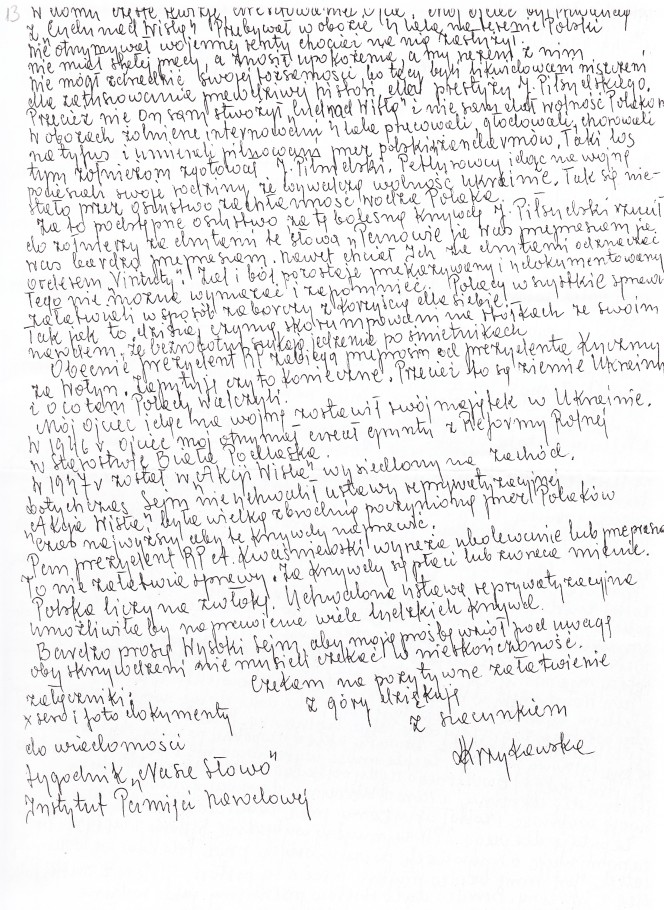 13
z „Cudu nad Wisłą" Przebywał w obozie u Lalą na terenie Polski
nie otrzymywał wojennej renty chociaż na nią zasłużył.
nie miał stałej pracy, a znosił upokorzenia, a my razem z nim
nie mógł zdradzić swojej tożsamości, bo tacy byli likwidowani niszczeni
dla zatuszowania prawdziwej historii, dla prestiżu J. Piłsudskiego.
Przecież nie On sam stworzył „Cud nad Wisłą" i nie sam dał wolność Polakom
W obozach żołnierze internowani pracowali, głodowali, chorowali
na tyfus i umierali pilnowani przez polskich żandarmów. Taki los
tym żołnierzom zgotował J. Piłsudski. Petlurowcy idąc na wojnę
pocieszali swoje rodziny, że wywalczą wolność Ukrainie. Tak się nie-
stało przez oszustwo zachłanność wodza Polaka.
Za to podstępne oszustwo za tę bolesną krzywdę J. Piłsudski rzucił
do żołnierzy za drutami te słowa „Panowie ja Was przepraszam ja
Was bardzo przepraszam. Nawet chciał Ich za drutami odznaczać
orderem Virtuti". Żal i ból pozostaje przekazywany i udokumentowany
Tego nie można wymazać i zapomnieć. Polacy wszystkie sprawy
załatwiali w sposób zaborczy z korzyścią dla siebie.
Tak jak to dzisiaj czynią skorumpowani na stołkach ze swoim
narodem, że bezrobotni szukają jedzenia po śmietnikach
Obecnie prezydent RP zabiega przeprosin od prezydenta Kuczmy
za Wołyń. Zapytuję czy to konieczne. Przecież to są ziemie Ukrainy
i o co tam Polacy walczyli.
Mój ojciec idąc na wojnę zostawił swój majątek w Ukrainie.
W 1946 r. ojciec mój otrzymał areał gruntu z Reformy Rolnej
w Starostwie Biała Podlaska.
W 1947 r został w „Akcji Wisła" wysiedlony na zachód.
Dotychczas Sejm nie uchwalił ustawy reprywatyzacyjnej
„Akcja Wisła" była wielką zbrodnią poczynioną przez Polaków
Czas najwyższy aby te krzywdy naprawić.
Pan prezydent RP A. Kwaśniewski wyraża ubolewanie lub przeprasza
To nie załatwia sprawy. Za krzywdy się płaci lub zwraca mienie.
Polska liczy na zwłokę. Uchwalona ustawa reprywatyzacyjna
umożliwiłaby naprawienie wiele ludzkich krzywd.
Bardzo proszę Wysoki Sejm, aby moją prośbę wziął pod uwagę
oby skrzywdzeni nie musieli czekać w nieskończoność.
Czekam na pozytywne załatwienie
załączniki: z góry dziękuję
xsero i foto dokumenty z szacunkiem
do wiadomości
tygodnik „Nasze Słowo" Krzykawska
Instytut Pamięci Narodowej